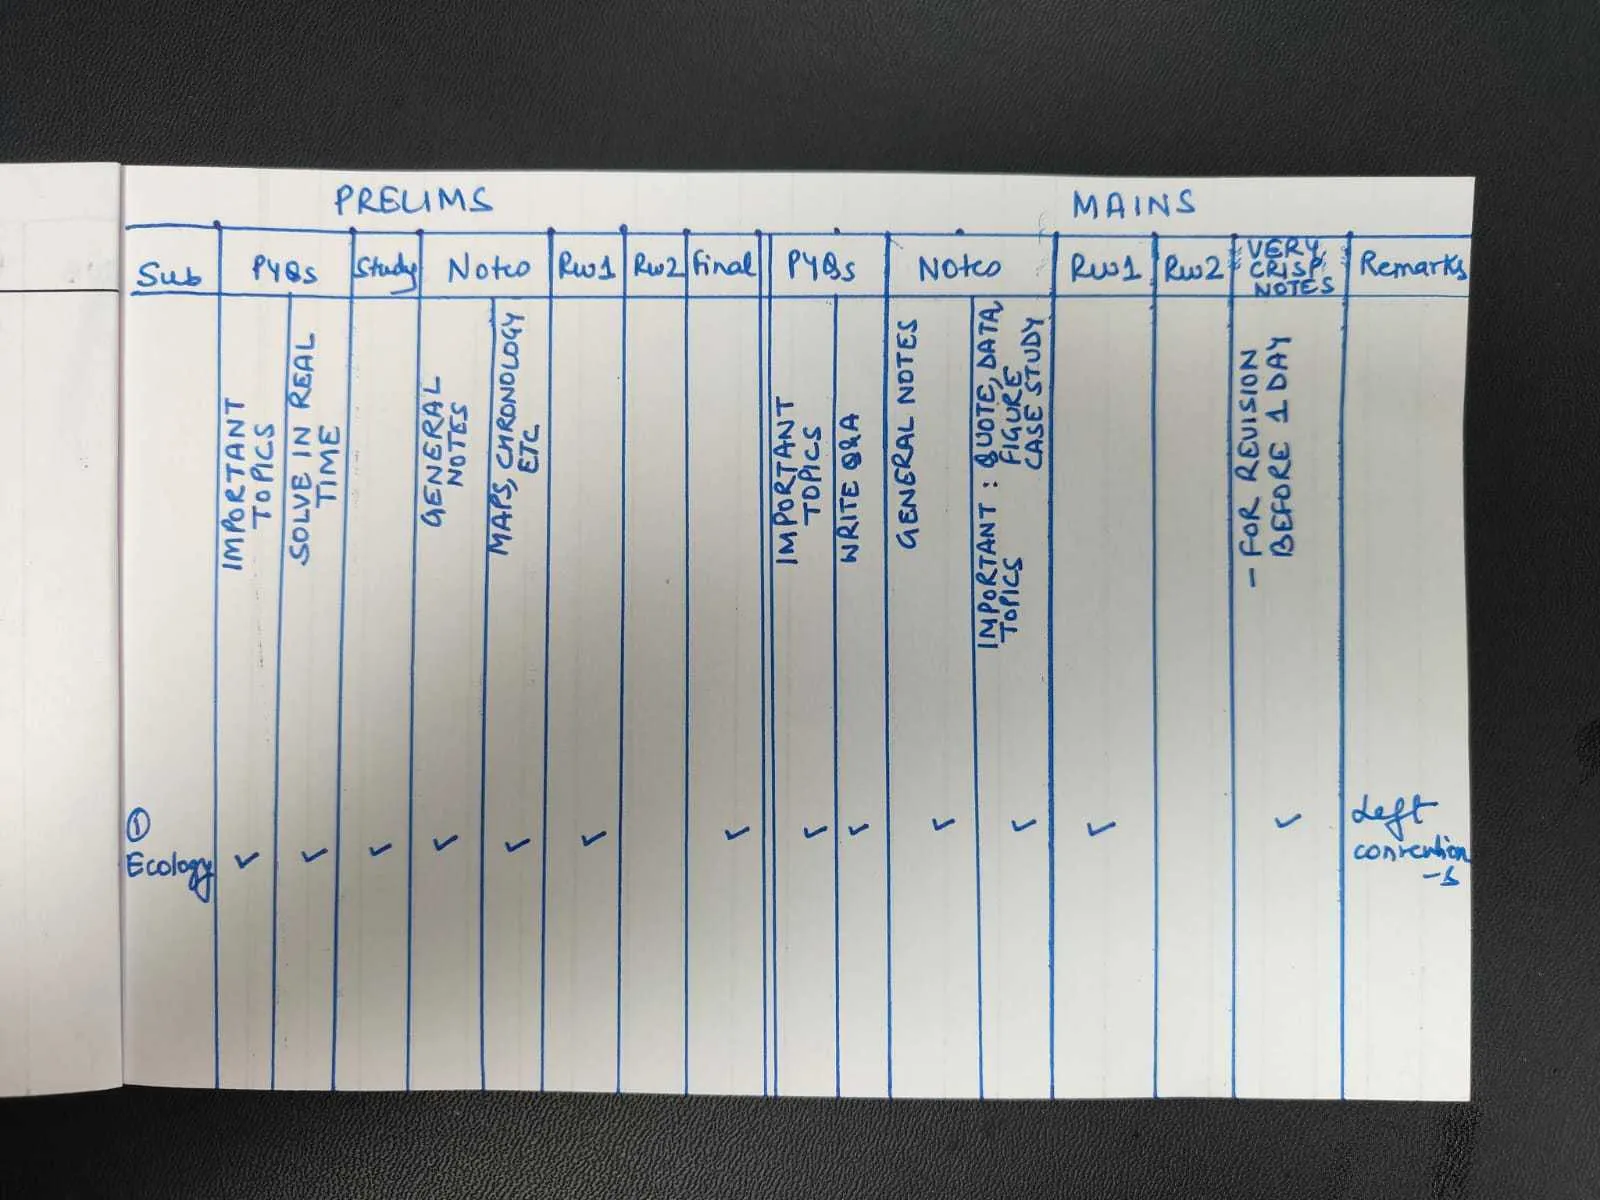 PRELIMS
MAINS
Sub
PYQs
Study
Notes
Rw1
Rw2
Final
PYQs
Notes
Rw1
Rw2
VERY
CRISP
NOTES
Remarks
IMPORTANT
TOPICS
SOLVE IN REAL
TIME
GENERAL
NOTES
MAPS, CHRONOLOGY
ETC
IMPORTANT
TOPICS
WRITE Q&A
GENERAL NOTES
IMPORTANT : QUOTE, DATA,
TOPICS FIGURE
CASE STUDY
- FOR REVISION
BEFORE 1 DAY
①
Ecology ✓ ✓ ✓ ✓ ✓ ✓ ✓ ✓ ✓ ✓ ✓ ✓ ✓
Left
convention
-s